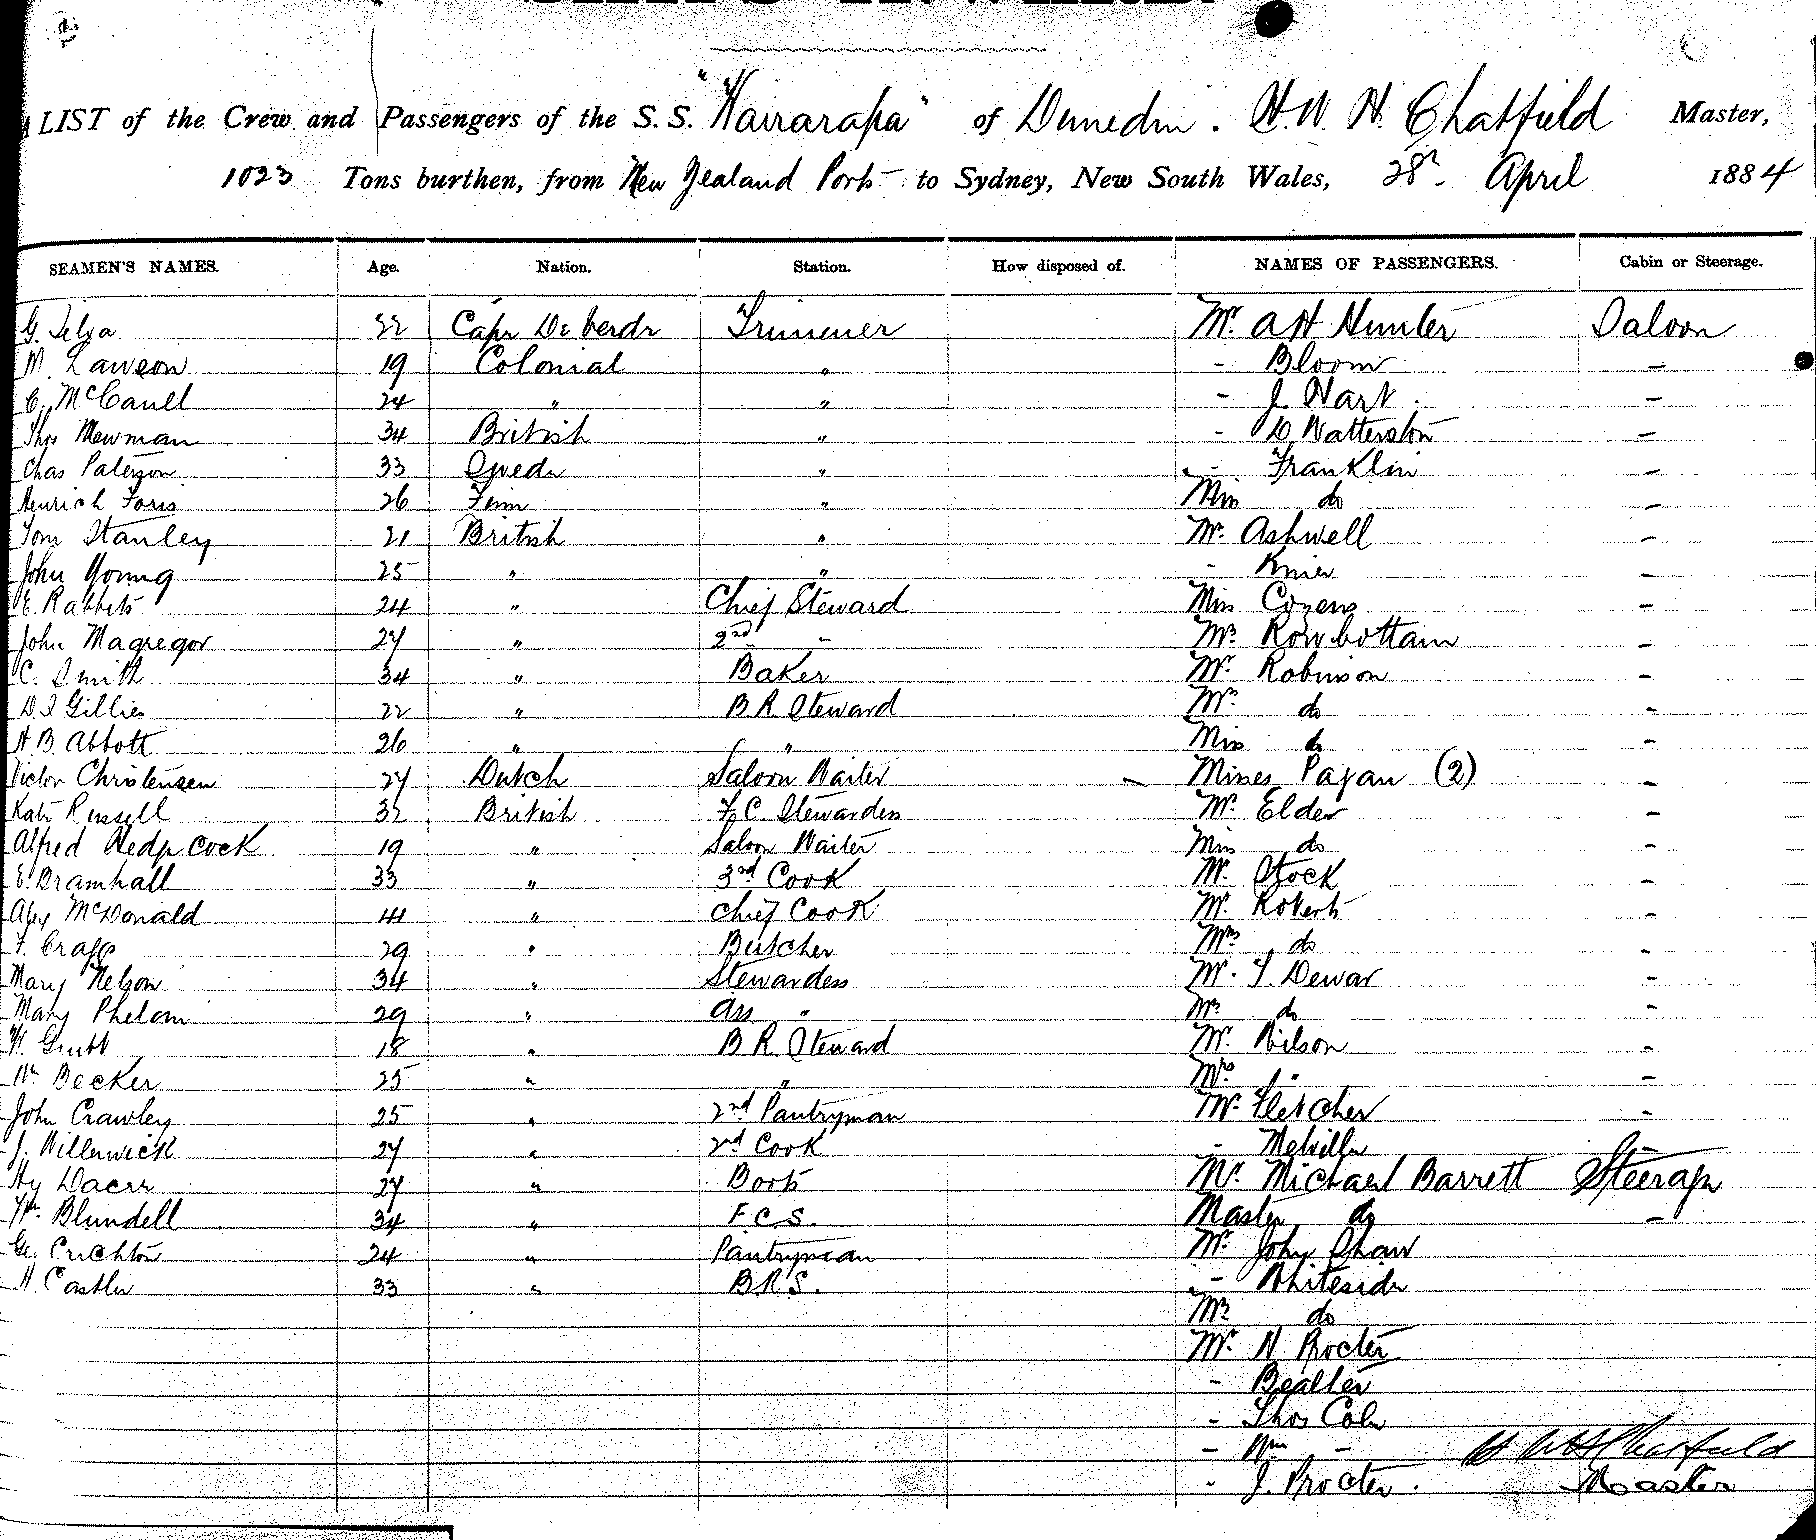 LIST of the Crew and Passengers of the S.S. "Wairarapa" of Dunedin. H. W. H. Chatfield Master,
1023 Tons burthen, from New Zealand Ports to Sydney, New South Wales, 28th April 1884
SEAMEN'S NAMES. Age. Nation. Station. How disposed of. NAMES OF PASSENGERS. Cabin or Steerage.
G. 22 Cape De Verde Trimmer Mr. A H Hunter Saloon
M. Lawson 19 Colonial " - Bloom -
C. McCaull 24 " " - J. Hart. -
Thos Newman 34 British " - D. Watterston -
Chas Paterson 33 Swede " - Franklin -
Henrich Foris 26 Finn " Miss do -
Tom Stanley 21 British " Mr. Ashwell -
John Young 25 " " - -
E. Rabbits 24 " Chief Steward Miss Cozens -
John Magregor 27 " 2nd - Mrs Rowbottam -
C. Smith 34 " Baker Mr. Robinson -
D. J Gillies 22 " B. R. Steward Mrs do -
H B. Abbott 26 " " Miss do -
Victor Christensen 27 Dutch Saloon Waiter Misses Pagan (2) -
Kate Russell 32 British F. C. Stewardess Mr. Elder -
Alfred Hedgcock 19 " Saloon Waiter Miss do -
E. Bramhall 33 " 3rd Cook Mr. Stock -
Alex McDonald 41 " Chief Cook Mr. Roberts -
F. Cragg 29 " Butcher Mrs do -
Mary Nelson 34 " Stewardess Mr. T. Dewar -
Mary Phelan 29 " Ass " Mrs do -
W. 18 " B R Steward Mr. Wilson -
Wm Becker 25 " " Mrs " -
John Crawley 25 " 2nd Pantryman Mr. Fletcher -
J. Willerwick 27 " 2nd Cook - Melville -
Hy Dacre 27 " Boots Mr. Michael Barrett Steerage
Wm. Blundell 34 " F. C. S. Master do -
Geo. Crichton 24 " Pantryman Mr. John Shaw
H Castler 33 " B.R.S. - Whiteside
Mrs do
Mr. H Procter
- Bealter
- Thos Cole
- Wm - H W H Chatfield
- J. Procter. Master